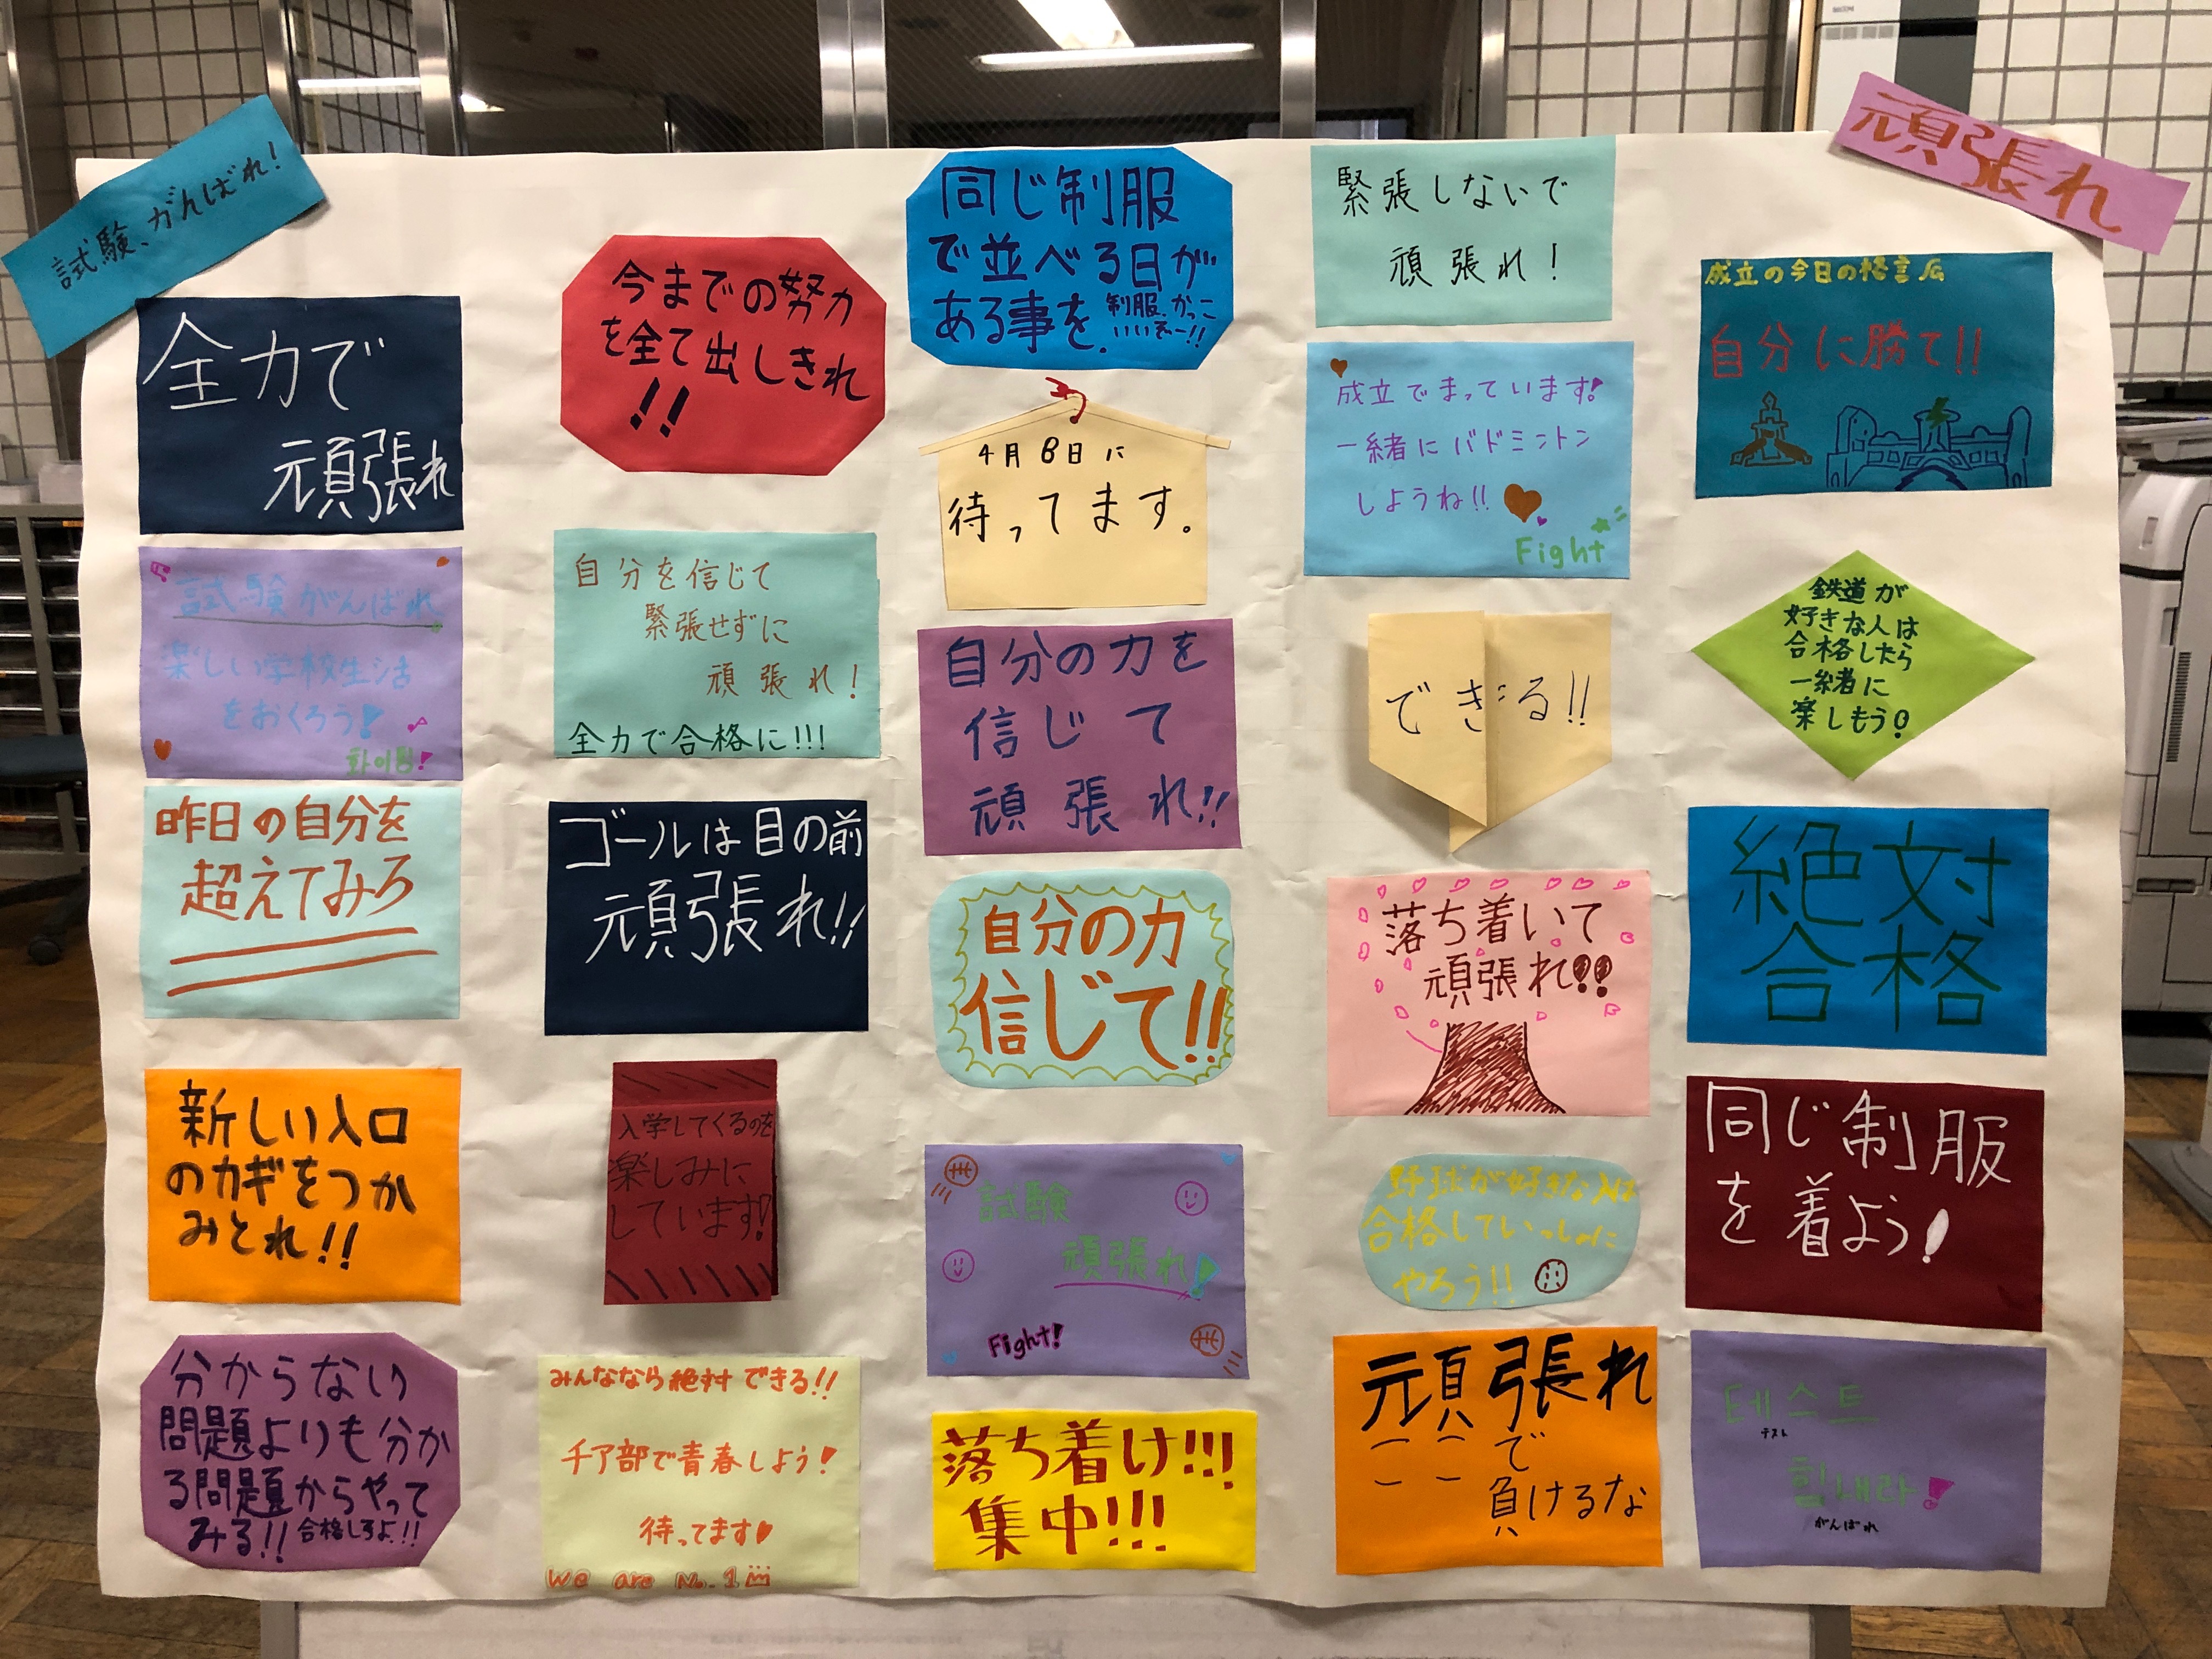 試験、がんばれ!
頑張れ
全力で
頑張れ
試験がんばれ
楽しい学校生活
をおくろう!
화이팅!
昨日の自分を
超えてみろ
新しい入口
のカギをつか
みとれ!!
分からない
問題よりも分か
る問題からやって
みる!! 合格しろよ!!
今までの努力
を全て出しきれ
!!
自分を信じて
緊張せずに
頑張れ!
全力で合格に!!!
ゴールは目の前
頑張れ!!
入学してくるのを
楽しみに
しています!!
みんななら絶対できる!!
チア部で青春しよう!
待ってます♥
We are No.1
同じ制服
で並べる日が
ある事を.
制服、かっこ
いいぞー!!
4月6日に
待ってます。
自分の力を
信じて
頑張れ!!
自分の力
信じて!!
試験
頑張れ!
Fight!
落ち着け!!!
集中!!!
緊張しないで
頑張れ!
成立でまっています!
一緒にバドミントン
しようね!!
Fight
できる!!
落ち着いて
頑張れ!!
野球が好きな人は
合格していっしょに
やろう!!
頑張れ
で
負けるな
成立の今日の格言
自分に勝て!!
鉄道が
好きな人は
合格したら
一緒に
楽しもう!
絶対
合格
同じ制服
を着よう!
테스트
テスト
힘내라!
がんばれ